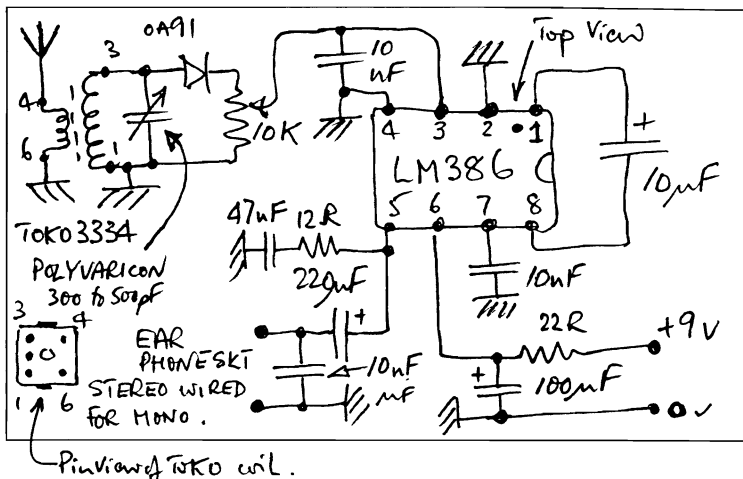 OA91
3
4
6
1
10
nF
10K
Top View
4 3 2 1
LM386
5 6 7 8
+
10µF
TOKO3334
POLYVARICON
300 to 500pF
3 4
1 6
47nF 12R
220µF
+
EAR
PHONE SKT
STEREO WIRED
FOR MONO.
10nF
µF
10nF
22R
+9V
+
100µF
0V
Pin View of TOKO coil.